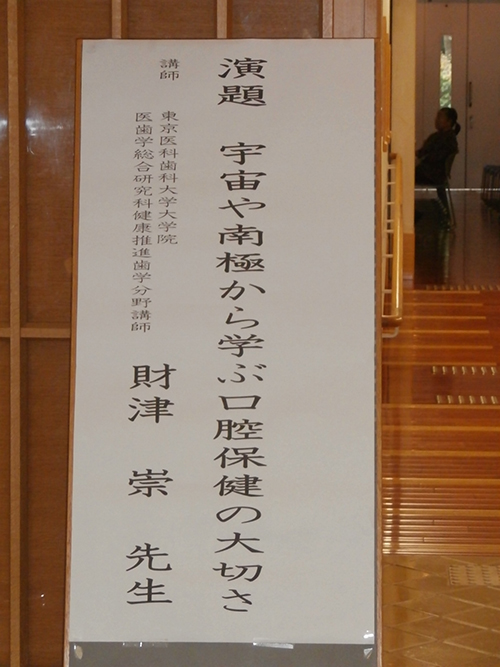 演題 宇宙や南極から学ぶ口腔保健の大切さ
講師
東京医科歯科大学大学院
医歯学総合研究科健康推進歯学分野講師
財津 崇 先生